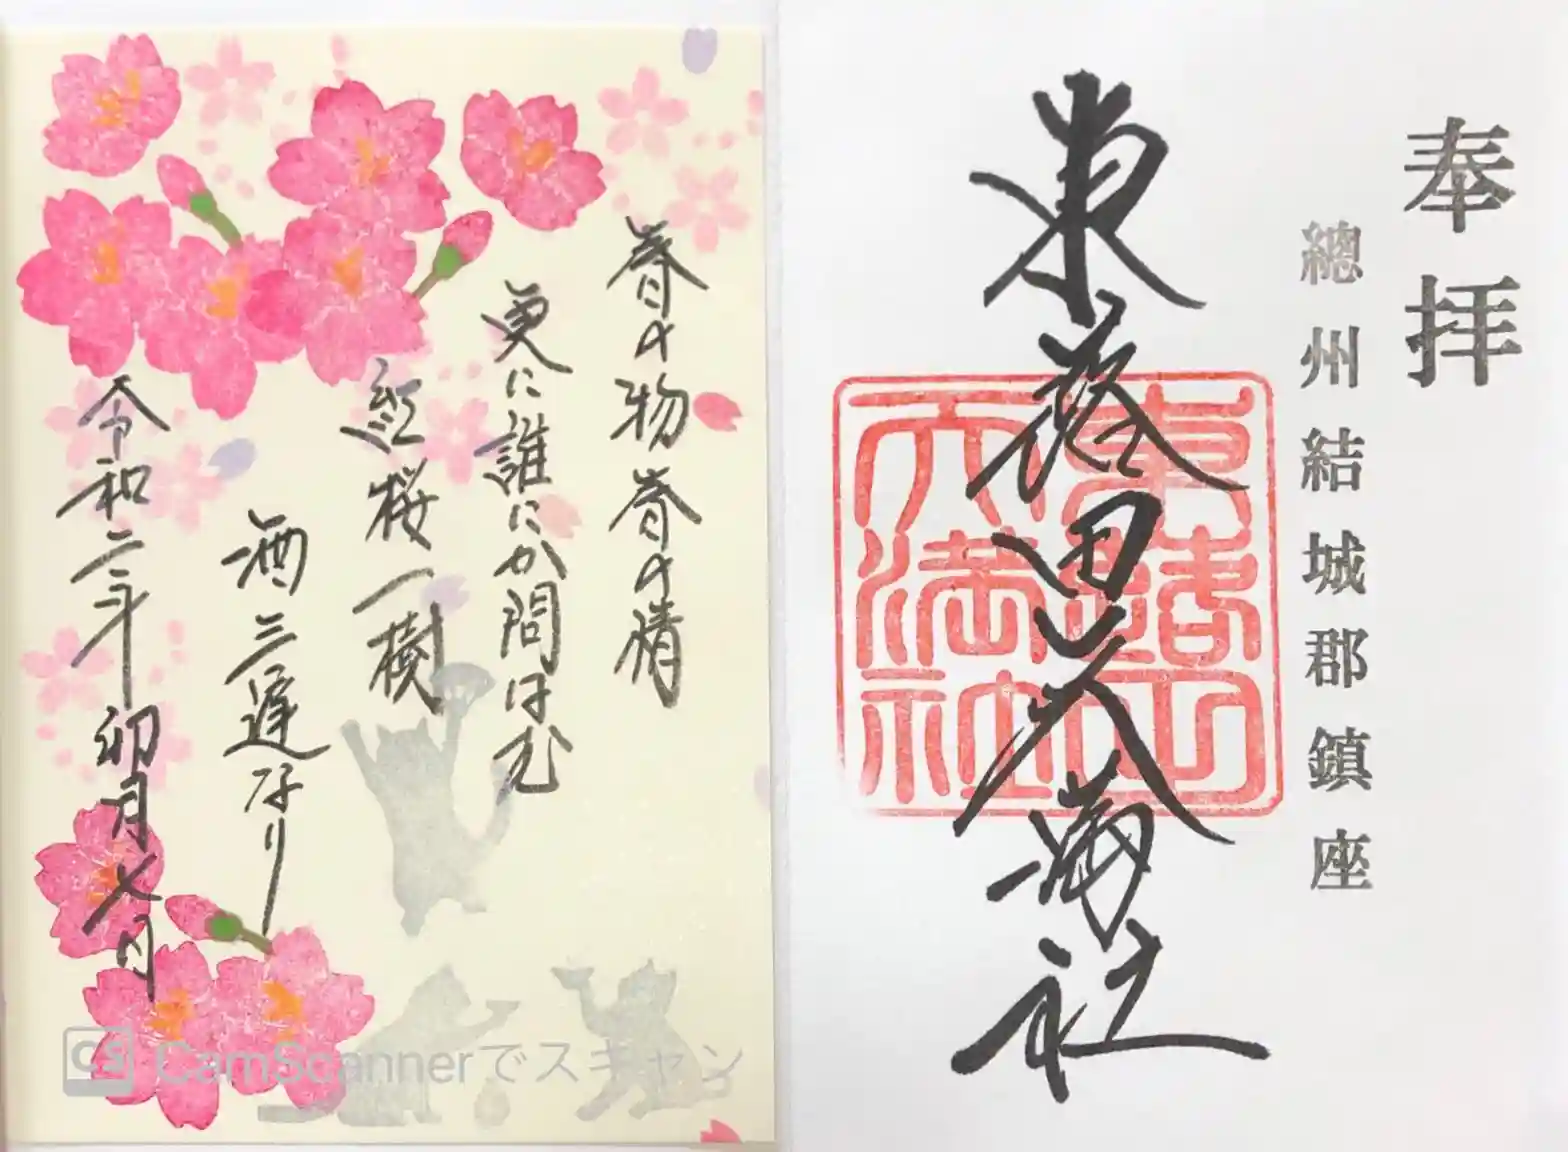 奉拝
總州結城郡鎮座
東蕗田天満社
東蕗田
天満社
春の物春の情
更に誰にか問はむ
紅桜一樹
酒三遅なり
令和二年卯月七日
CS CamScannerでスキャン